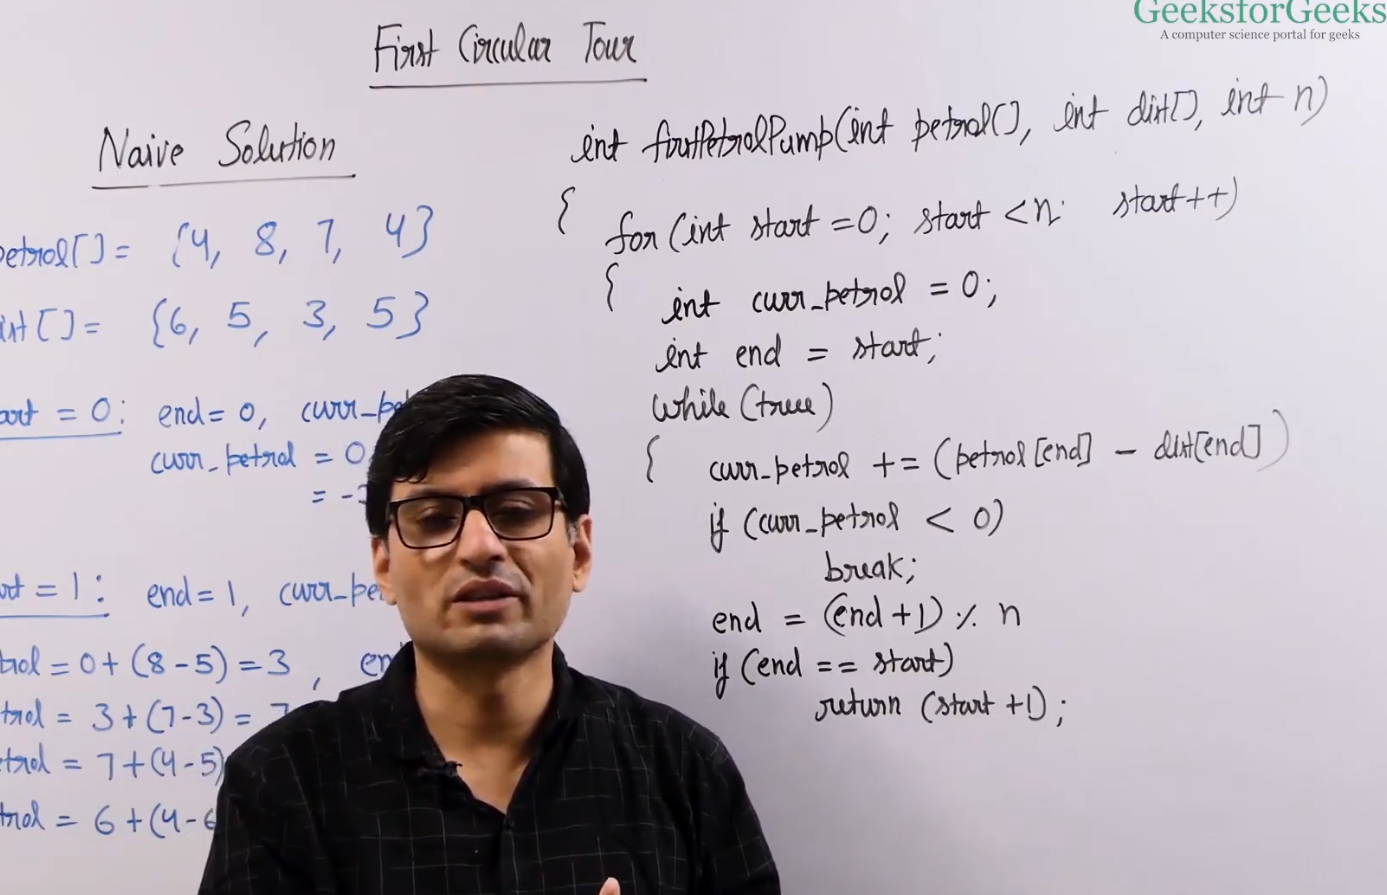 GeeksforGeeks
A computer science portal for geeks
First Circular Tour
Naive Solution
petrol[] = {4, 8, 7, 4}
int[] = {6, 5, 3, 5}
start = 0: end = 0, curr_pe
curr_petrol = 0
= -
art = 1: end = 1, curr_pe
trol = 0 + (8 - 5) = 3, en
trol = 3 + (7 - 3) = 7
etrol = 7 + (4 - 5)
trol = 6 + (4 - 6
int firstPetrolPump(int petrol[], int dist[], int n)
{
for (int start = 0; start < n; start++)
{
int curr_petrol = 0;
int end = start;
while (true)
{
curr_petrol += (petrol[end] - dist[end])
if (curr_petrol < 0)
break;
end = (end + 1) % n
if (end == start)
return (start + 1);